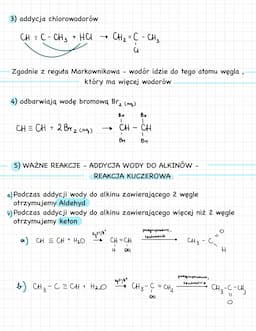 3) addycja chlorowodorów
CH ≡ C - CH₃ + HCl → CH₂ = C - CH₃
Cl
Zgodnie z regułą Markownikowa - wodór idzie do tego atomu węgla,
który ma więcej wodorów
4) odbarwiają wodę bromową Br₂ (aq)
Br Br
CH ≡ CH + 2 Br₂ (aq) → CH - CH
Br Br
5) WAŻNE REAKCJE - ADDYCJA WODY DO ALKINÓW -
REAKCJA KUCZEROWA
a) Podczas addycji wody do alkinu zawierającego 2 węgle
otrzymujemy Aldehyd
b) Podczas addycji wody do alkinu zawierającego więcej niż 2 węgle
otrzymujemy keton
a) CH ≡ CH + H₂O → CH = CH → CH₃ - C
O
H OH H
b) CH₃ - C ≡ CH + H₂O → CH₃ - C = CH₂ → CH₃ - C - CH₃
OH O